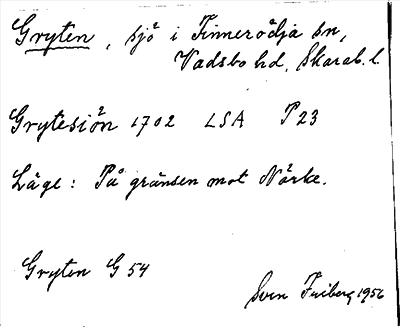 Gryten, sjö i Finnerödja sn,
Vadsbo hd, Skarab. l.
Grytesiön 1702 LSA P23
Läge: På gränsen mot Närke.
Gryten G 54
Sven Friberg 1956